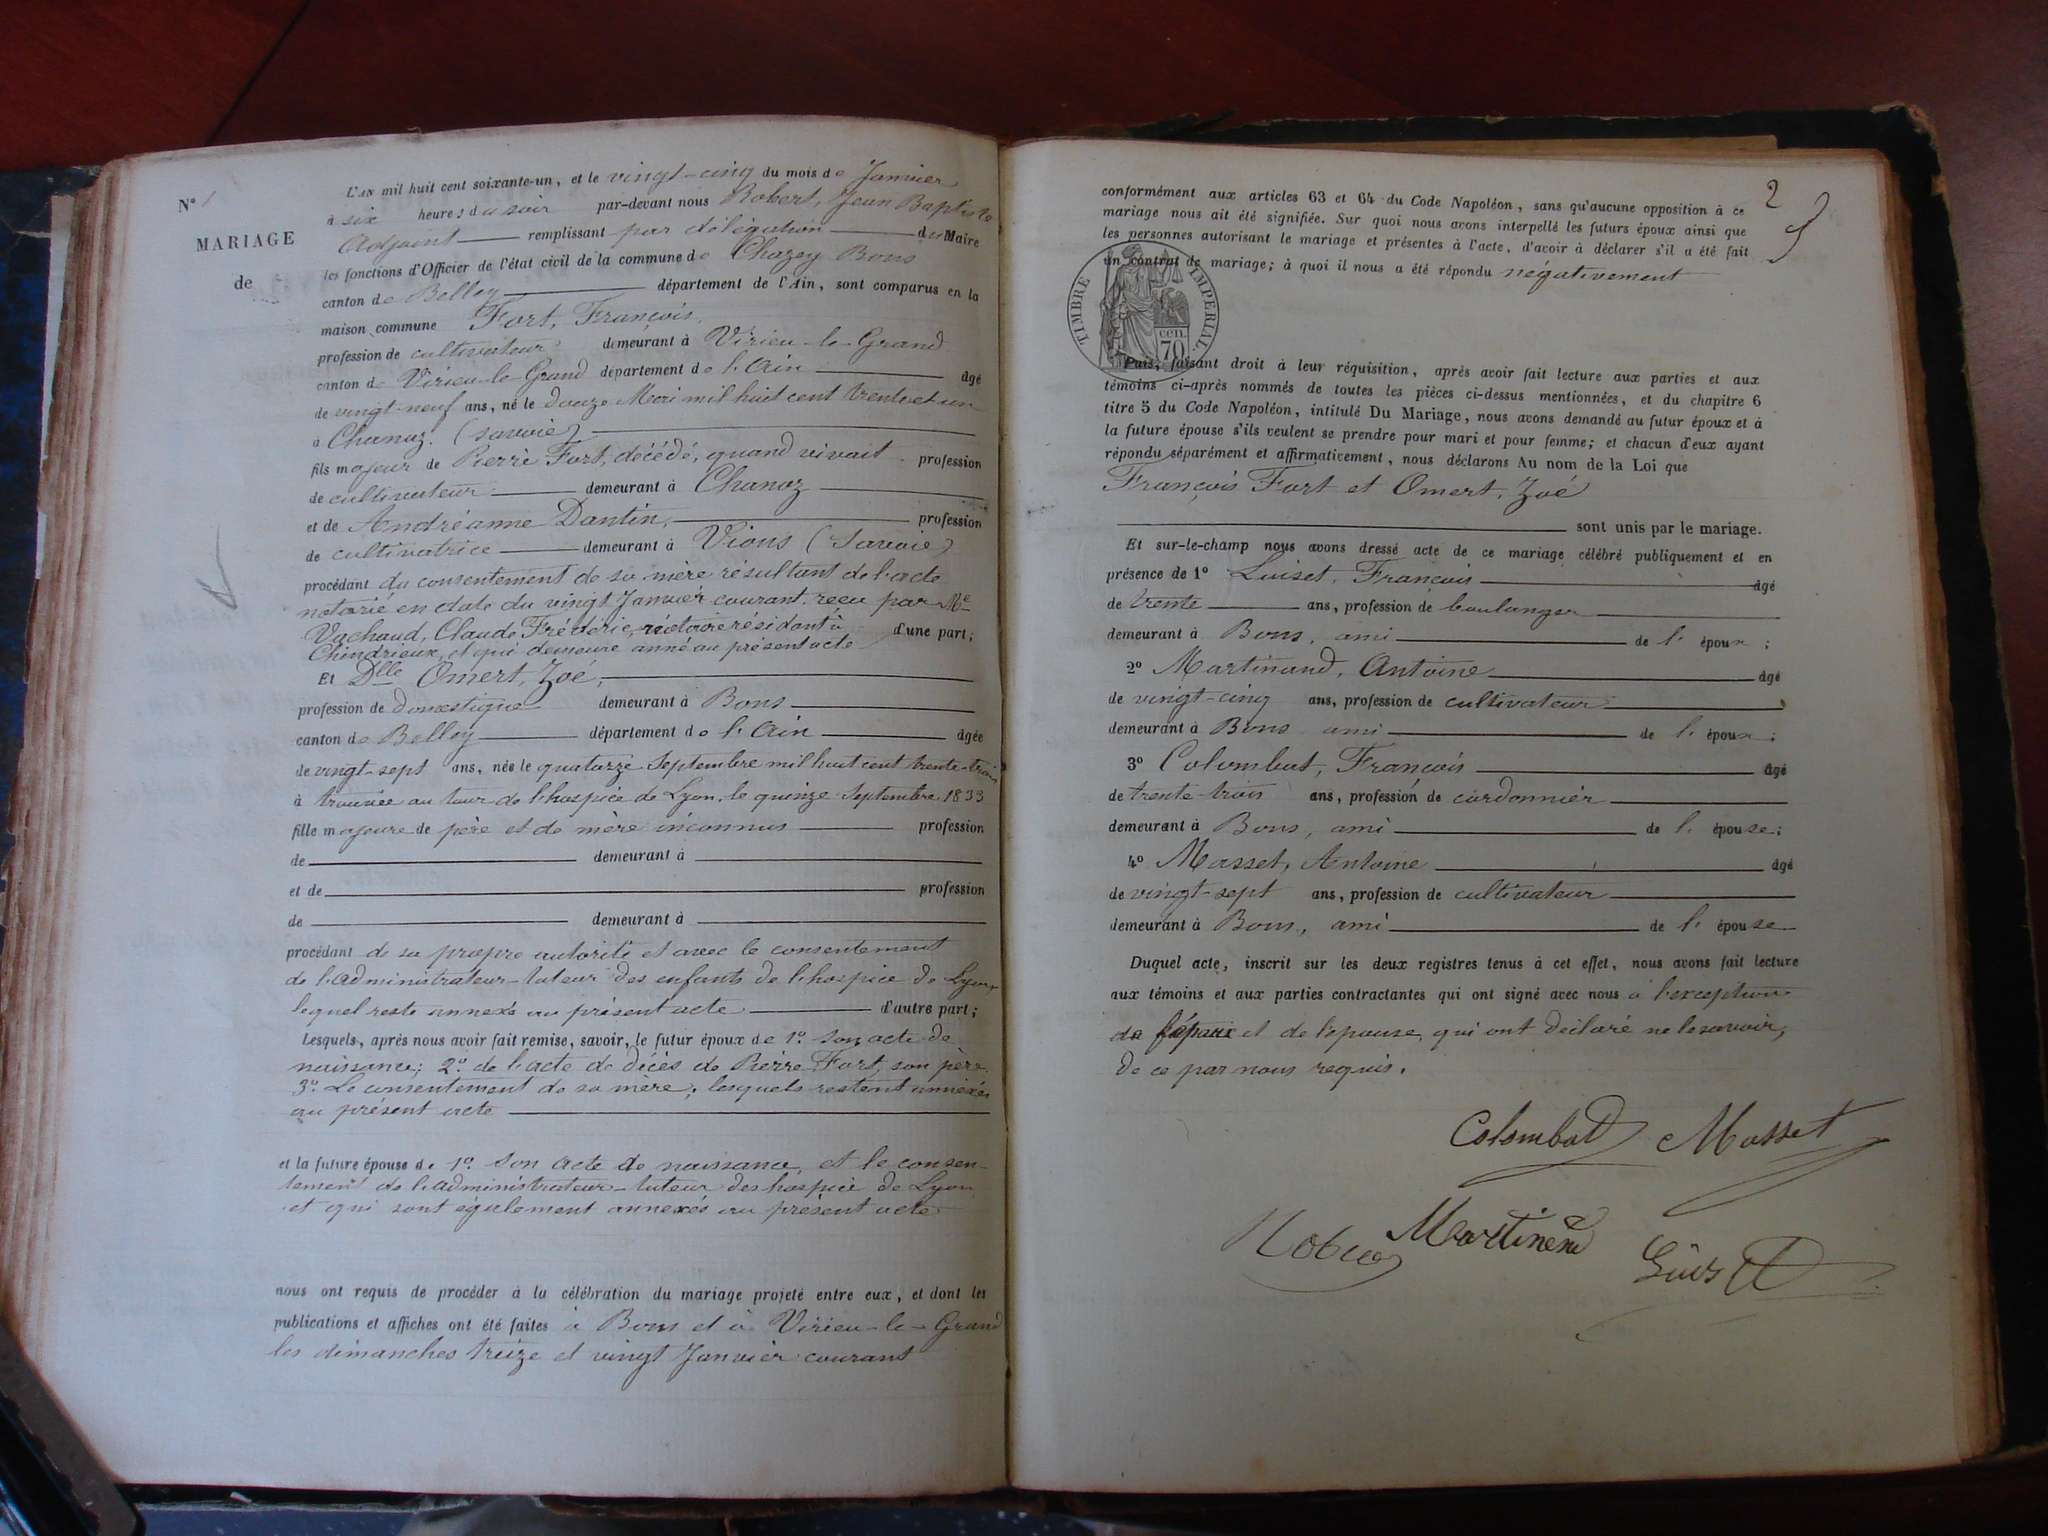 N° 1
MARIAGE
de
L'AN mil huit cent soixante-un, et le vingt-cinq du mois de Janvier
à six heures du soir par-devant nous Robert, Jean Baptiste
Adjoint remplissant par délégation du Maire
les fonctions d'Officier de l'état civil de la commune de Chazey Bons
canton de Belley département de l'Ain, sont comparus en la
maison commune Fort, François,
profession de cultivateur demeurant à Virieu-le-Grand
canton de Virieu-le-Grand département de l'Ain âgé
de vingt-neuf ans, né le douze Mai mil huit cent trente et un
à Chanaz. (Savoie)
fils majeur de Pierre Fort, décédé, quand vivait profession
de cultivateur demeurant à Chanaz
et de Andréanne Dantin, profession
de cultivatrice demeurant à Vions (Savoie)
procédant du consentement de sa mère résultant de l'acte
notarié en date du vingt Janvier courant, reçu par Me
Vachaud, Claude Fréderic, notaire residant à d'une part;
Chindrieux, et qui demeure anné au présent acte
Et Dlle Omert, Zoé,
profession de domestique demeurant à Bons
canton de Belley département de l'Ain âgée
de vingt-sept ans, née le quatorze Septembre mil huit cent trente-trois
à trouvée au tour de l'hospice de Lyon, le quinze Septembre 1833
fille majeure de père et de mère inconnus profession
de demeurant à
et de profession
de demeurant à
procédant de sa propre autorité et avec le consentement
de l'administrateur-tuteur des enfants de l'hospice de Lyon,
lequel reste annexé au présent acte d'autre part;
Lesquels, après nous avoir fait remise, savoir, le futur époux de 1° son acte de
naissance; 2° de l'acte de décès de Pierre Fort, son père
3° Le consentement de sa mère; lesquels restent annexés
au présent acte
et la future épouse de 1° Son acte de naissance, et le consen-
tement de l'administrateur-tuteur des hospice de Lyon
et qui sont également annexés au présent acte
nous ont requis de procéder à la célébration du mariage projeté entre eux, et dont les
publications et affiches ont été faites à Bons et à Virieu-le-Grand
les dimanches treize et vingt Janvier courant
2
conformément aux articles 63 et 64 du Code Napoléon, sans qu'aucune opposition à ce
mariage nous ait été signifiée. Sur quoi nous avons interpellé les futurs époux ainsi que
les personnes autorisant le mariage et présentes à l'acte, d'avoir à déclarer s'il a été fait
un contrat de mariage; à quoi il nous a été répondu négativement
TIMBRE IMPERIAL
70 cen.
Puis, faisant droit à leur réquisition, après avoir fait lecture aux parties et aux
témoins ci-après nommés de toutes les pièces ci-dessus mentionnées, et du chapitre 6
titre 5 du Code Napoléon, intitulé Du Mariage, nous avons demandé au futur époux et à
la future épouse s'ils veulent se prendre pour mari et pour femme; et chacun d'eux ayant
répondu séparément et affirmativement, nous déclarons Au nom de la Loi que
François Fort et Omert, Zoé
sont unis par le mariage.
Et sur-le-champ nous avons dressé acte de ce mariage célébré publiquement et en
présence de 1° Luiset, François âgé
de trente ans, profession de boulanger
demeurant à Bons, ami de l'époux;
2° Martinand, Antoine âgé
de vingt-cinq ans, profession de cultivateur
demeurant à Bons ami de l'époux;
3° Colombat, François âgé
de trente-trois ans, profession de cordonnier
demeurant à Bons, ami de l'épouse;
4° Masset, Antoine âgé
de vingt-sept ans, profession de cultivateur
demeurant à Bons, ami de l'épouse
Duquel acte, inscrit sur les deux registres tenus à cet effet, nous avons fait lecture
aux témoins et aux parties contractantes qui ont signé avec nous à l'exception
de l'époux et de l'épouse, qui ont déclaré ne le savoir,
de ce par nous requis.
Colombat Masset
Martinand